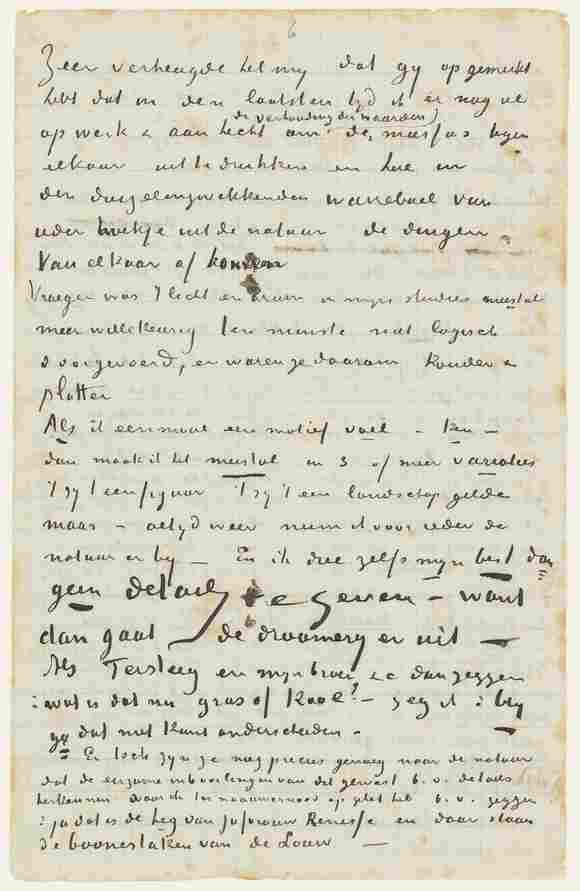 6
Zeer verheugde het my dat gy opgemerkt
hebt dat in den laatsten tyd ik er nog al
(de verhouding der waarden)
op werk & aan hecht om de massas tegen
elkaar uit te drukken en hoe in
den duizelingwekkenden warreboel van
ieder hoekje uit de natuur de dingen
Van elkaar af komen
Vroeger was 't licht en bruin in mijn studies meestal
meer willekeurig ten minste niet logisch
doorgevoerd, en waren ze daarom kouder &
platter
Als ik eenmaal een motief voel – ken –
dan maak ik het meestal in 3 of meer variaties
't zy 't een figuur 't zy 't een landschap gelde
maar – altyd weer neem ik voor ieder de
natuur er by – En ik doe zelfs myn best dan
geen details te geven – want
dan gaat de droomery er uit –
Als Tersteeg en myn broer &c dan zeggen
: wat is dat nu gras of kool? – zeg ik : bly
gy dat niet kunt onderscheiden –
En toch zyn ze nog precies genoeg naar de natuur
dat de eerzame inboorlingen van dit gewest b.v. details
herkennen waar ik ternauwernood op gelet heb b.v. zeggen
: ja dat is de heg van Jufvrouw Renesse en daar staan
de boonestaken van de Louw –